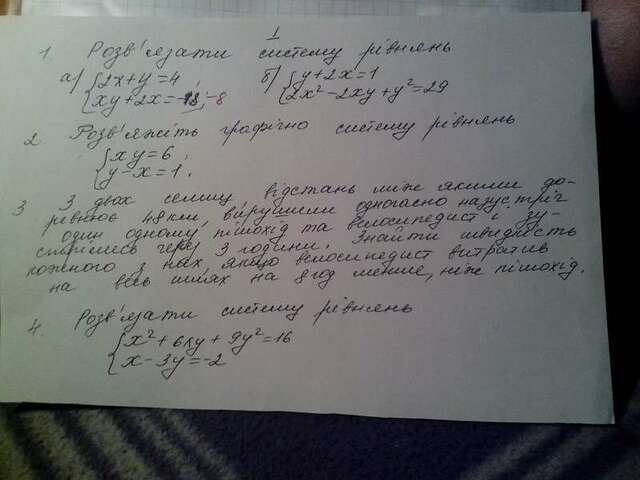 1
1. Розв'язати систему рівнянь
а) {2x+y=4 б) {y+2x=1
{xy+2x= -8 {2x²-2xy+y²=29
2 Розв'яжіть графічно систему рівнянь
{xy=6
{y-x=1.
3 З двох селищ відстань між якими до-
рівнює 48км, вирушили одночасно назустріч
один одному, пішохід та велосипедист і зу-
стрілись через 3 години. Знайти швидкість
кожного з них, якщо велосипедист витратив
на весь шлях на 8 год менше, ніж пішохід.
4. Розв'язати систему рівнянь
{x²+6xy+9y²=16
{x-3y=-2